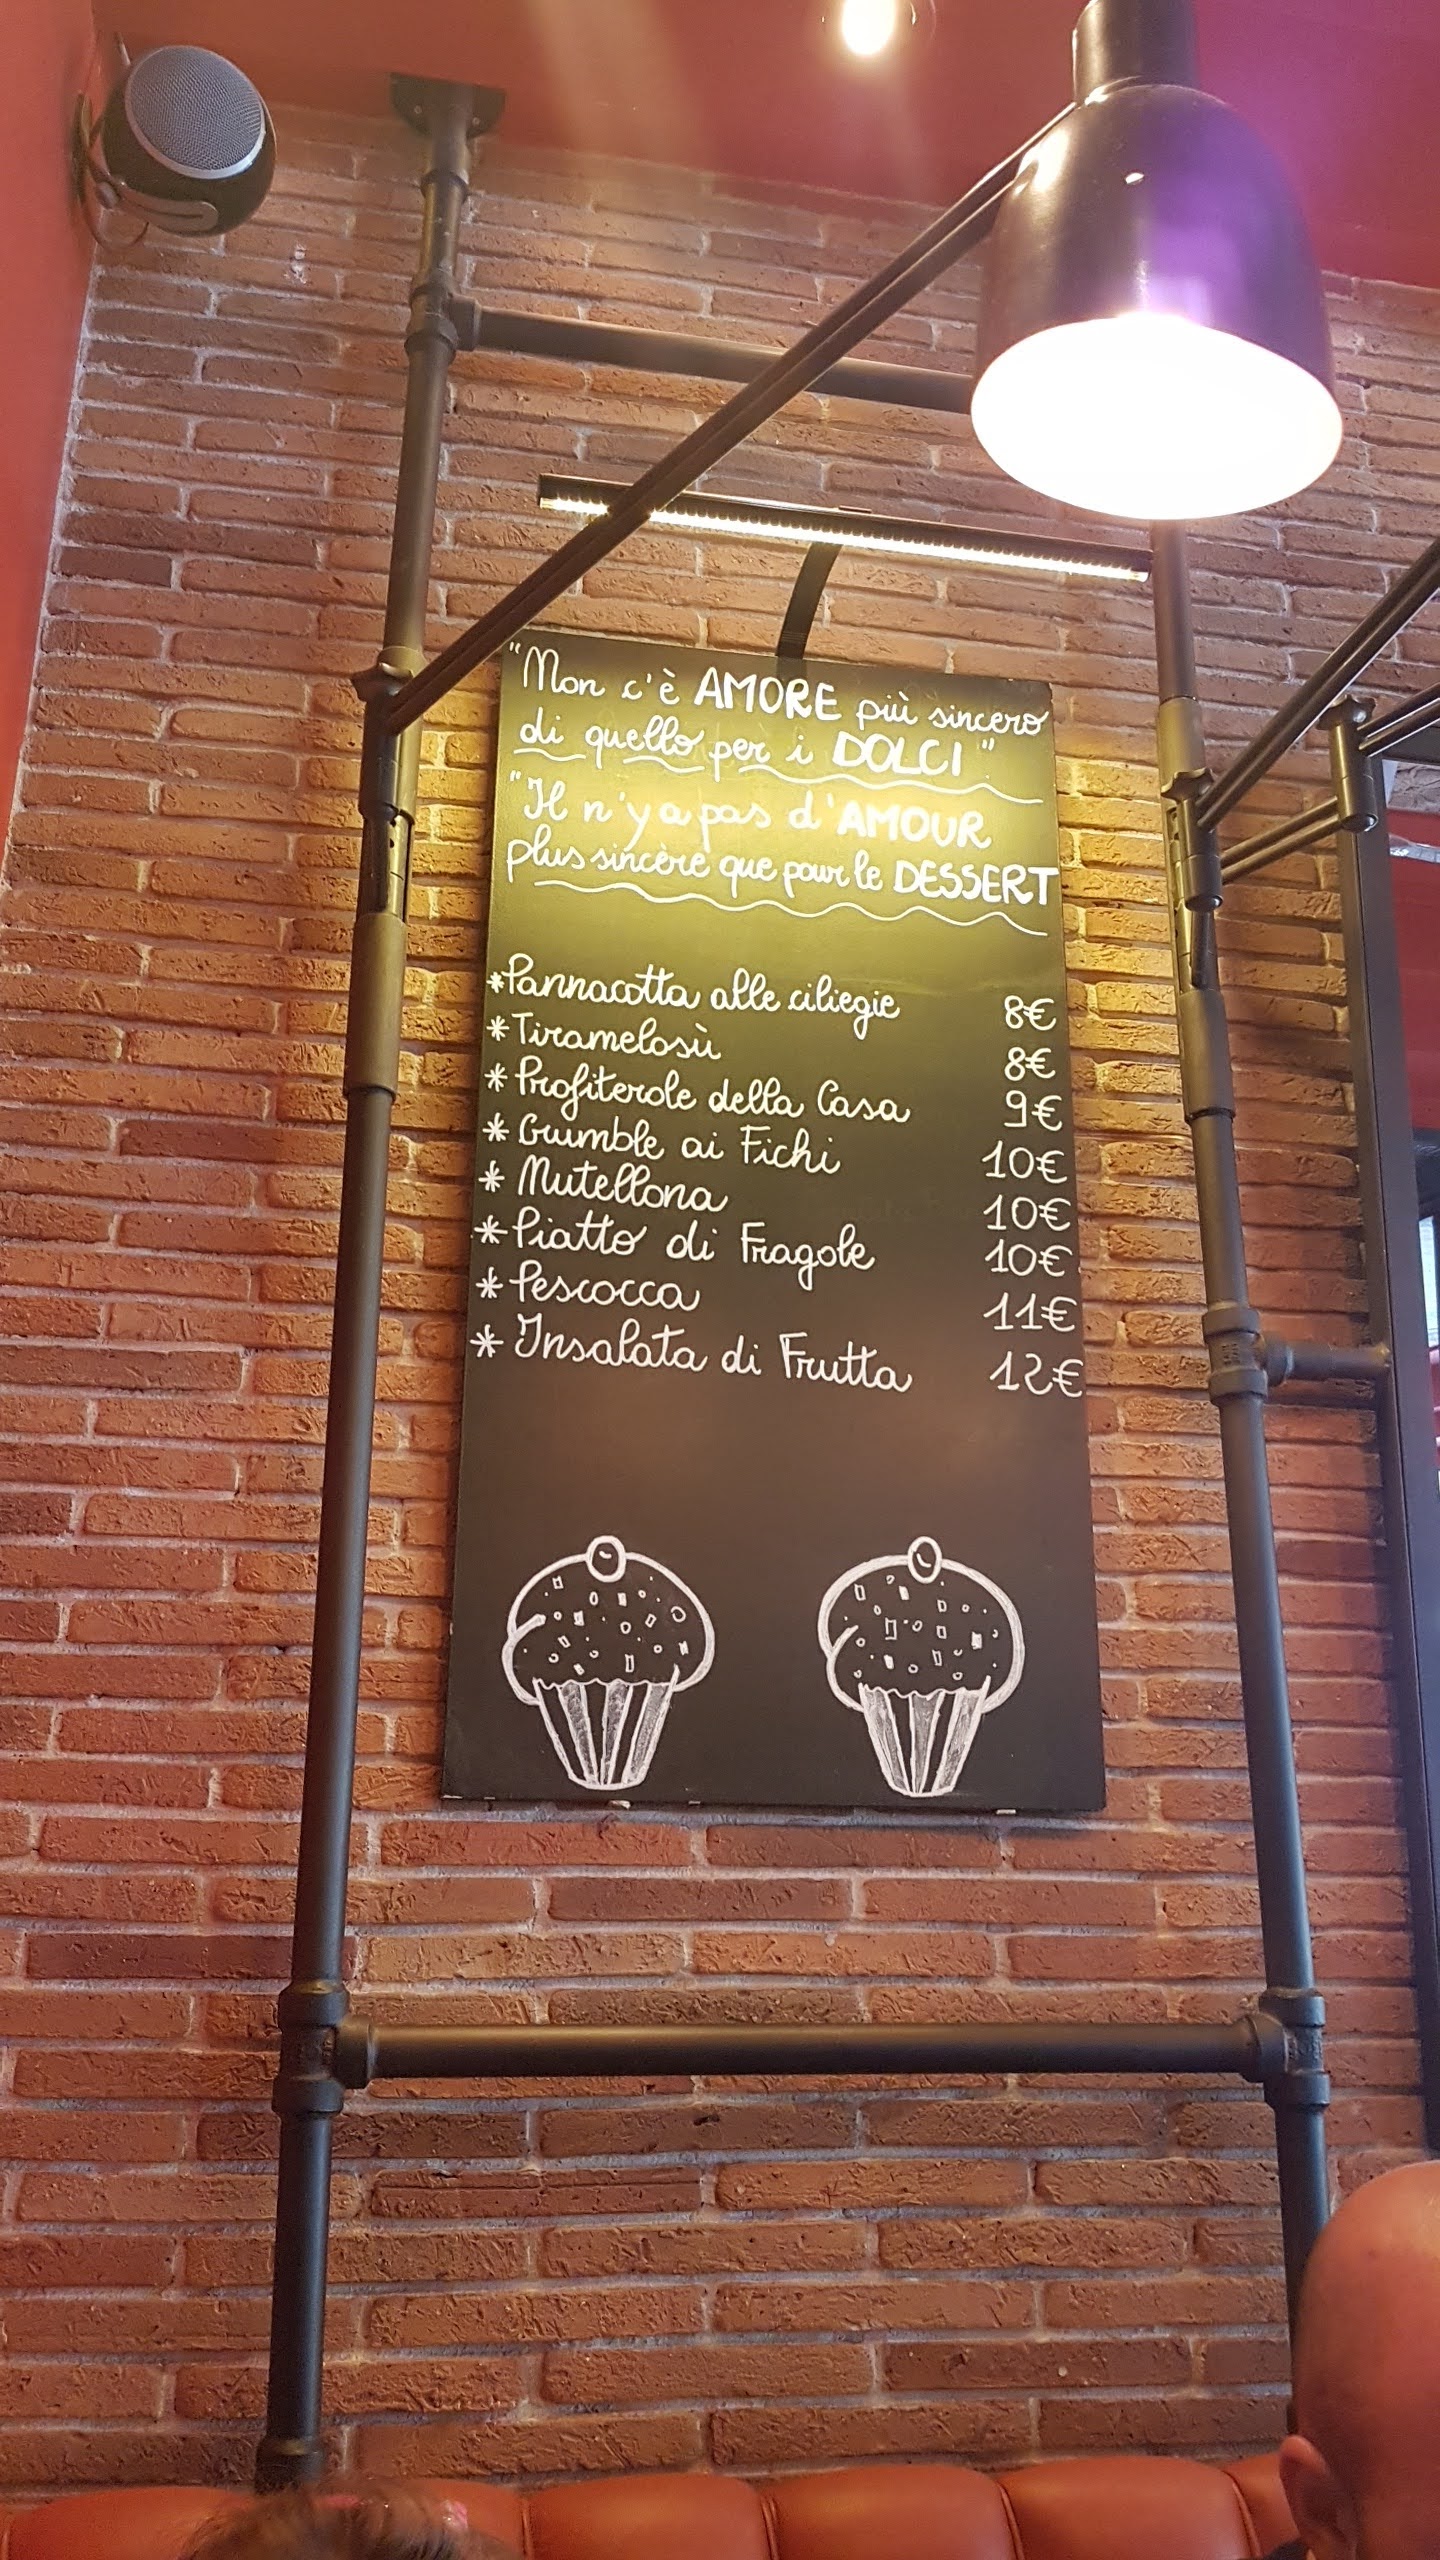 "Non c'è AMORE più sincero
di quello per i DOLCI"
"Il n'y a pas d'AMOUR
plus sincère que pour le DESSERT
*Pannacotta alle ciliegie 8€
*Tiramelosù 8€
*Profiterole della Casa 9€
*Crumble ai Fichi 10€
*Nutellona 10€
*Piatto di Fragole 10€
*Pescocca 11€
*Insalata di Frutta 12€